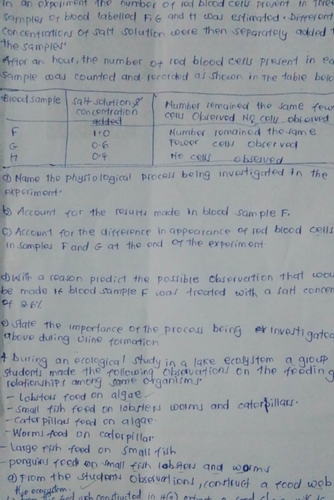 In an experiment the number of red blood cells present in three
samples of blood labelled F, G and H was estimated. Different
concentrations of salt solution were then separately added
the samples
After an hour, the number of red blood cells present in
sample was counted and recorded as shown in the table below
Blood sample | Salt solution & concentration added | Number remained the same few cells Observed No cells observed
F 1.0 Number remained the same
G 0.6 Fewer cells observed
H 0.4 No cells observed
a) Name the physiological process being investigated in the
experiment.
b) Account for the results made in blood sample F.
c) Account for the difference in appearance of red blood cells
in samples F and G at the end of the experiment
d) With a reason predict the possible observation that
be made if blood sample F was treated with a salt
of
e) State the importance of the process being investigated
above during urine formation
4 During an ecological study in a lake ecosystem a group
students made the following observations on the feeding
relationships among some organisms.
- Lobsters feed on algae
- Small fish feed on lobsters worms and caterpillars.
- Caterpillars feed on algae.
- Worms feed on caterpillar
- Large fish feed on small fish
- penguins feed on small fish lobsters and worms
a) From the students observations, construct a food web
the ecosystem.